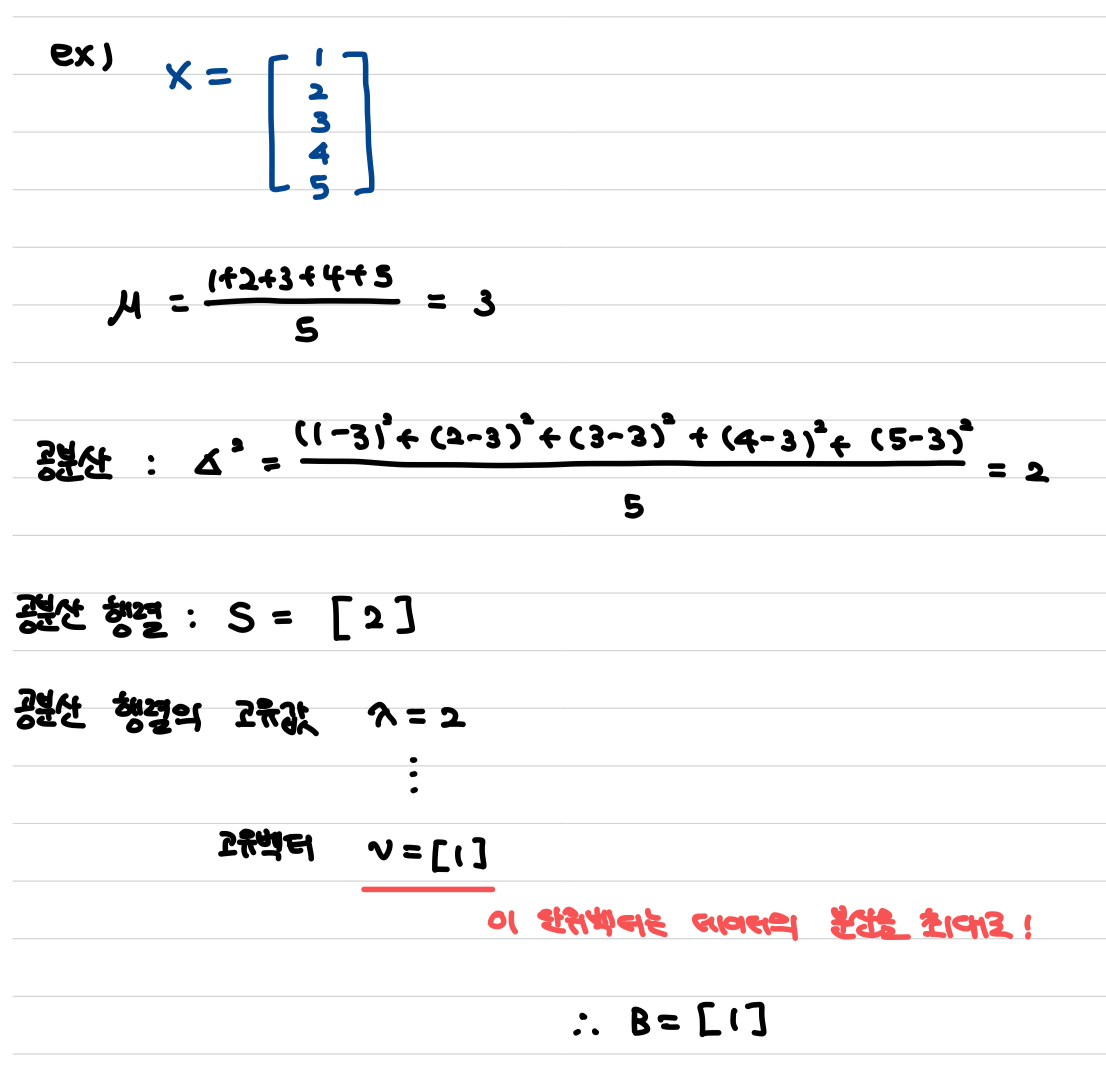 ex) X = [ 1
2
3
4
5 ]
μ = (1+2+3+4+5) / 5 = 3
공분산 : σ² = ((1-3)² + (2-3)² + (3-3)² + (4-3)² + (5-3)²) / 5 = 2
공분산 행렬 : S = [2]
공분산 행렬의 고유값 λ = 2
⋮
고유벡터 v = [1]
이 단위벡터는 데이터의 분산을 최대로!
∴ B = [1]